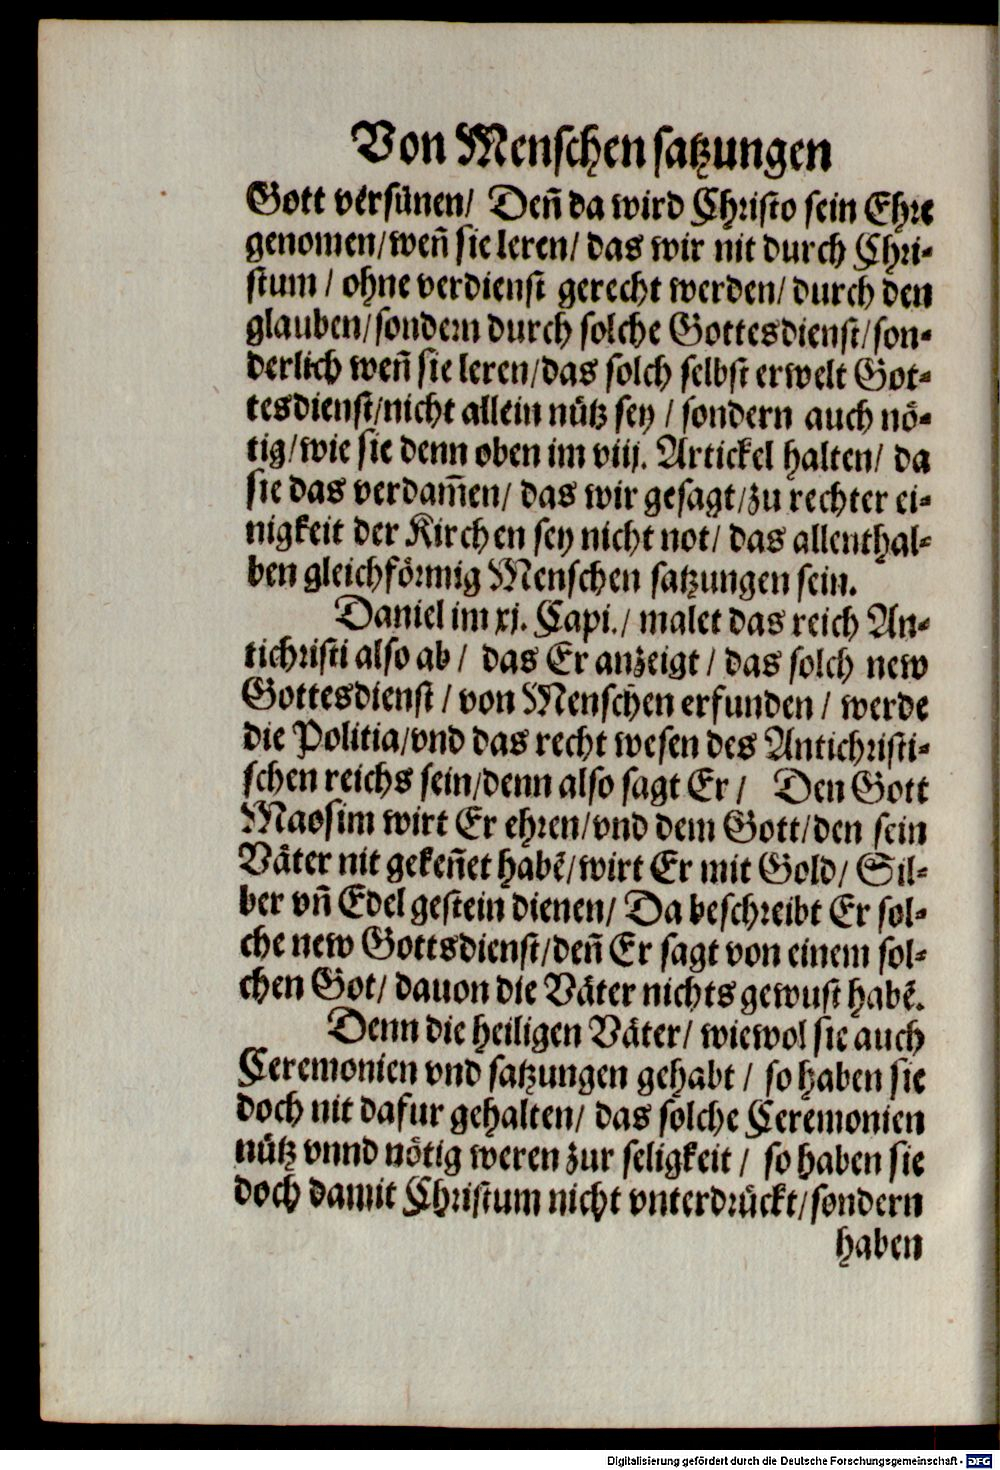 Von Menschen satzungen
Gott versünen/ Deñ da wird Christo sein Ehre
genomen/weñ sie leren/ das wir nit durch Chri-
stum / ohne verdienst gerecht werden/ durch den
glauben/sondern durch solche Gottesdienst/son-
derlich weñ sie leren/das solch selbst erwelt Got-
tesdienst/nicht allein nütz sey / sondern auch nö-
tig/wie sie denn oben im viij. Artickel halten/ da
sie das verdam̃en/ das wir gesagt/zu rechter ei-
nigkeit der Kirchen sey nicht not/ das allenthal-
ben gleichförmig Menschen satzungen sein.
Daniel im xj. Capi./ malet das reich An-
tichristi also ab / das Er anzeigt / das solch new
Gottesdienst / von Menschen erfunden / werde
die Politia/vnd das recht wesen des Antichristi-
schen reichs sein/denn also sagt Er / Den Gott
Maosim wirt Er ehren/vnd dem Gott/den sein
Väter nit gekeñet habẽ/wirt Er mit Gold/ Sil-
ber vñ Edel gestein dienen/ Da beschreibt Er sol-
che new Gottsdienst/deñ Er sagt von einem sol-
chen Got/ dauon die Väter nichts gewust habẽ.
Denn die heiligen Väter/ wiewol sie auch
Ceremonien vnd satzungen gehabt / so haben sie
doch nit dafur gehalten/ das solche Ceremonien
nütz vnnd nötig weren zur seligkeit / so haben sie
doch damit Christum nicht vnterdrückt/sondern
haben
Digitalisierung gefördert durch die Deutsche Forschungsgemeinschaft - DFG